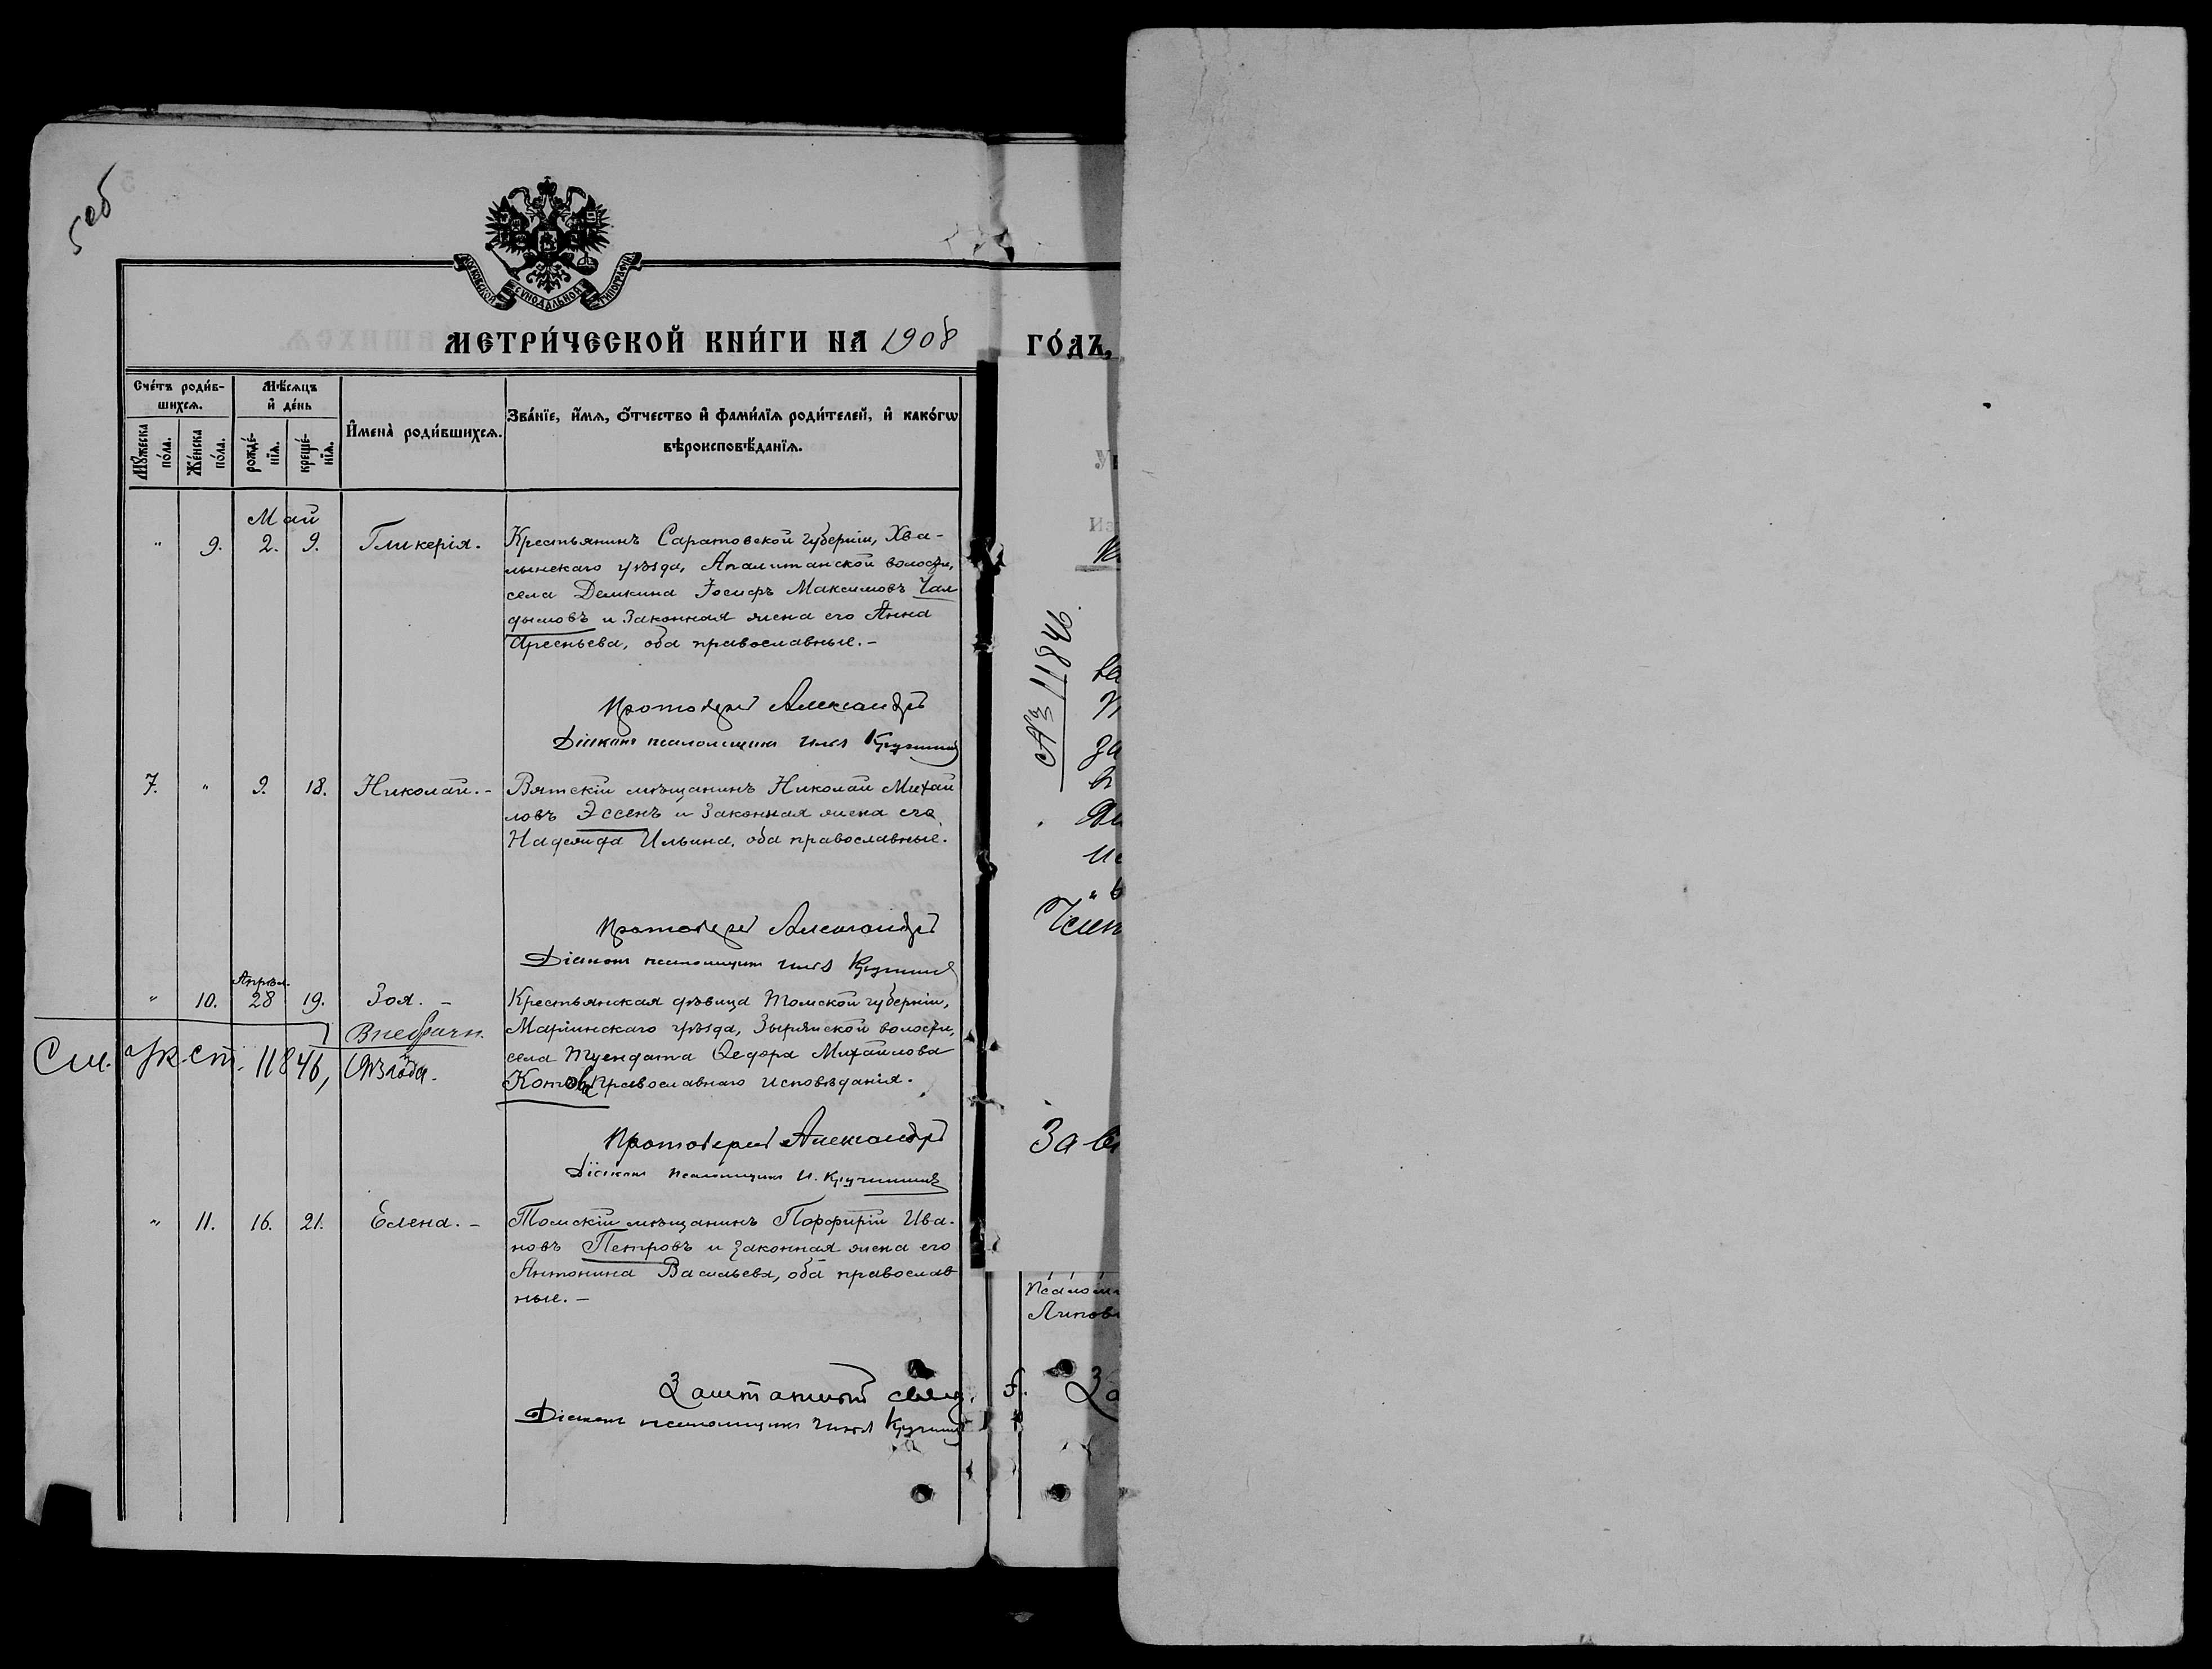 5 об
МОСКОВСКОЙ СѴНОДАЛЬНОЙ ТИПОГРАФІИ
МЕТРИ́ЧЕСКОЙ КНИ́ГИ НА 1908 ГО́ДЪ,
Сче́тъ роди́в-
шихсѧ.
Мѣ́сѧцъ
и҆ де́нь
Мꙋ́жеска по́ла.
Же́нска по́ла.
рожде́-
нїѧ.
креще́-
нїѧ.
И҆мена̀ роди́вшихсѧ.
Зва́нїе, и҆́мѧ, ѻ҆́тчество и҆ фами́лїѧ роди́телей, и҆ како́гѡ
вѣроисповѣ́данїѧ.
Май
" 9. 2. 9. Гликерія. Крестьянинъ Саратовской губерніи, Хва-
лынскаго уѣзда, Апалитанской волости,
села Демкина Іосифъ Максимовъ Чал
дымовъ и законная жена его Анна
Арсеньева, оба православные.-
Протоіерей Александръ
Діаконъ псаломщикъ Илія
7. " 9. 18. Николай.- Вятскій мѣщанинъ Николай Михай
ловъ Эссенъ и законная жена его
Надежда Ильина, оба православные.
Протоіерей Александръ
Діаконъ псаломщикъ Илія
Апрѣл.
" 10. 28 19. Зоя. - Крестьянская дѣвица Томской губерніи,
Внебрачн. Маріинскаго уѣзда, Зырянской волости,
См. ук. ст. 11846, села Туендата Ѳедора Михайлова
Котова православнаго исповѣданія.
Протоіерей Александръ
Діаконъ псаломщикъ И. Кручининъ
" 11. 16. 21. Елена. - Томскій мѣщанинъ Порфирій Ива-
новъ Петровъ и законная жена его
Антонина Васильева, оба православ
ные.-
Заштатный свящ.
Діаконъ псаломщикъ Илія
№ 11846.
за
Псалом
Липов
За